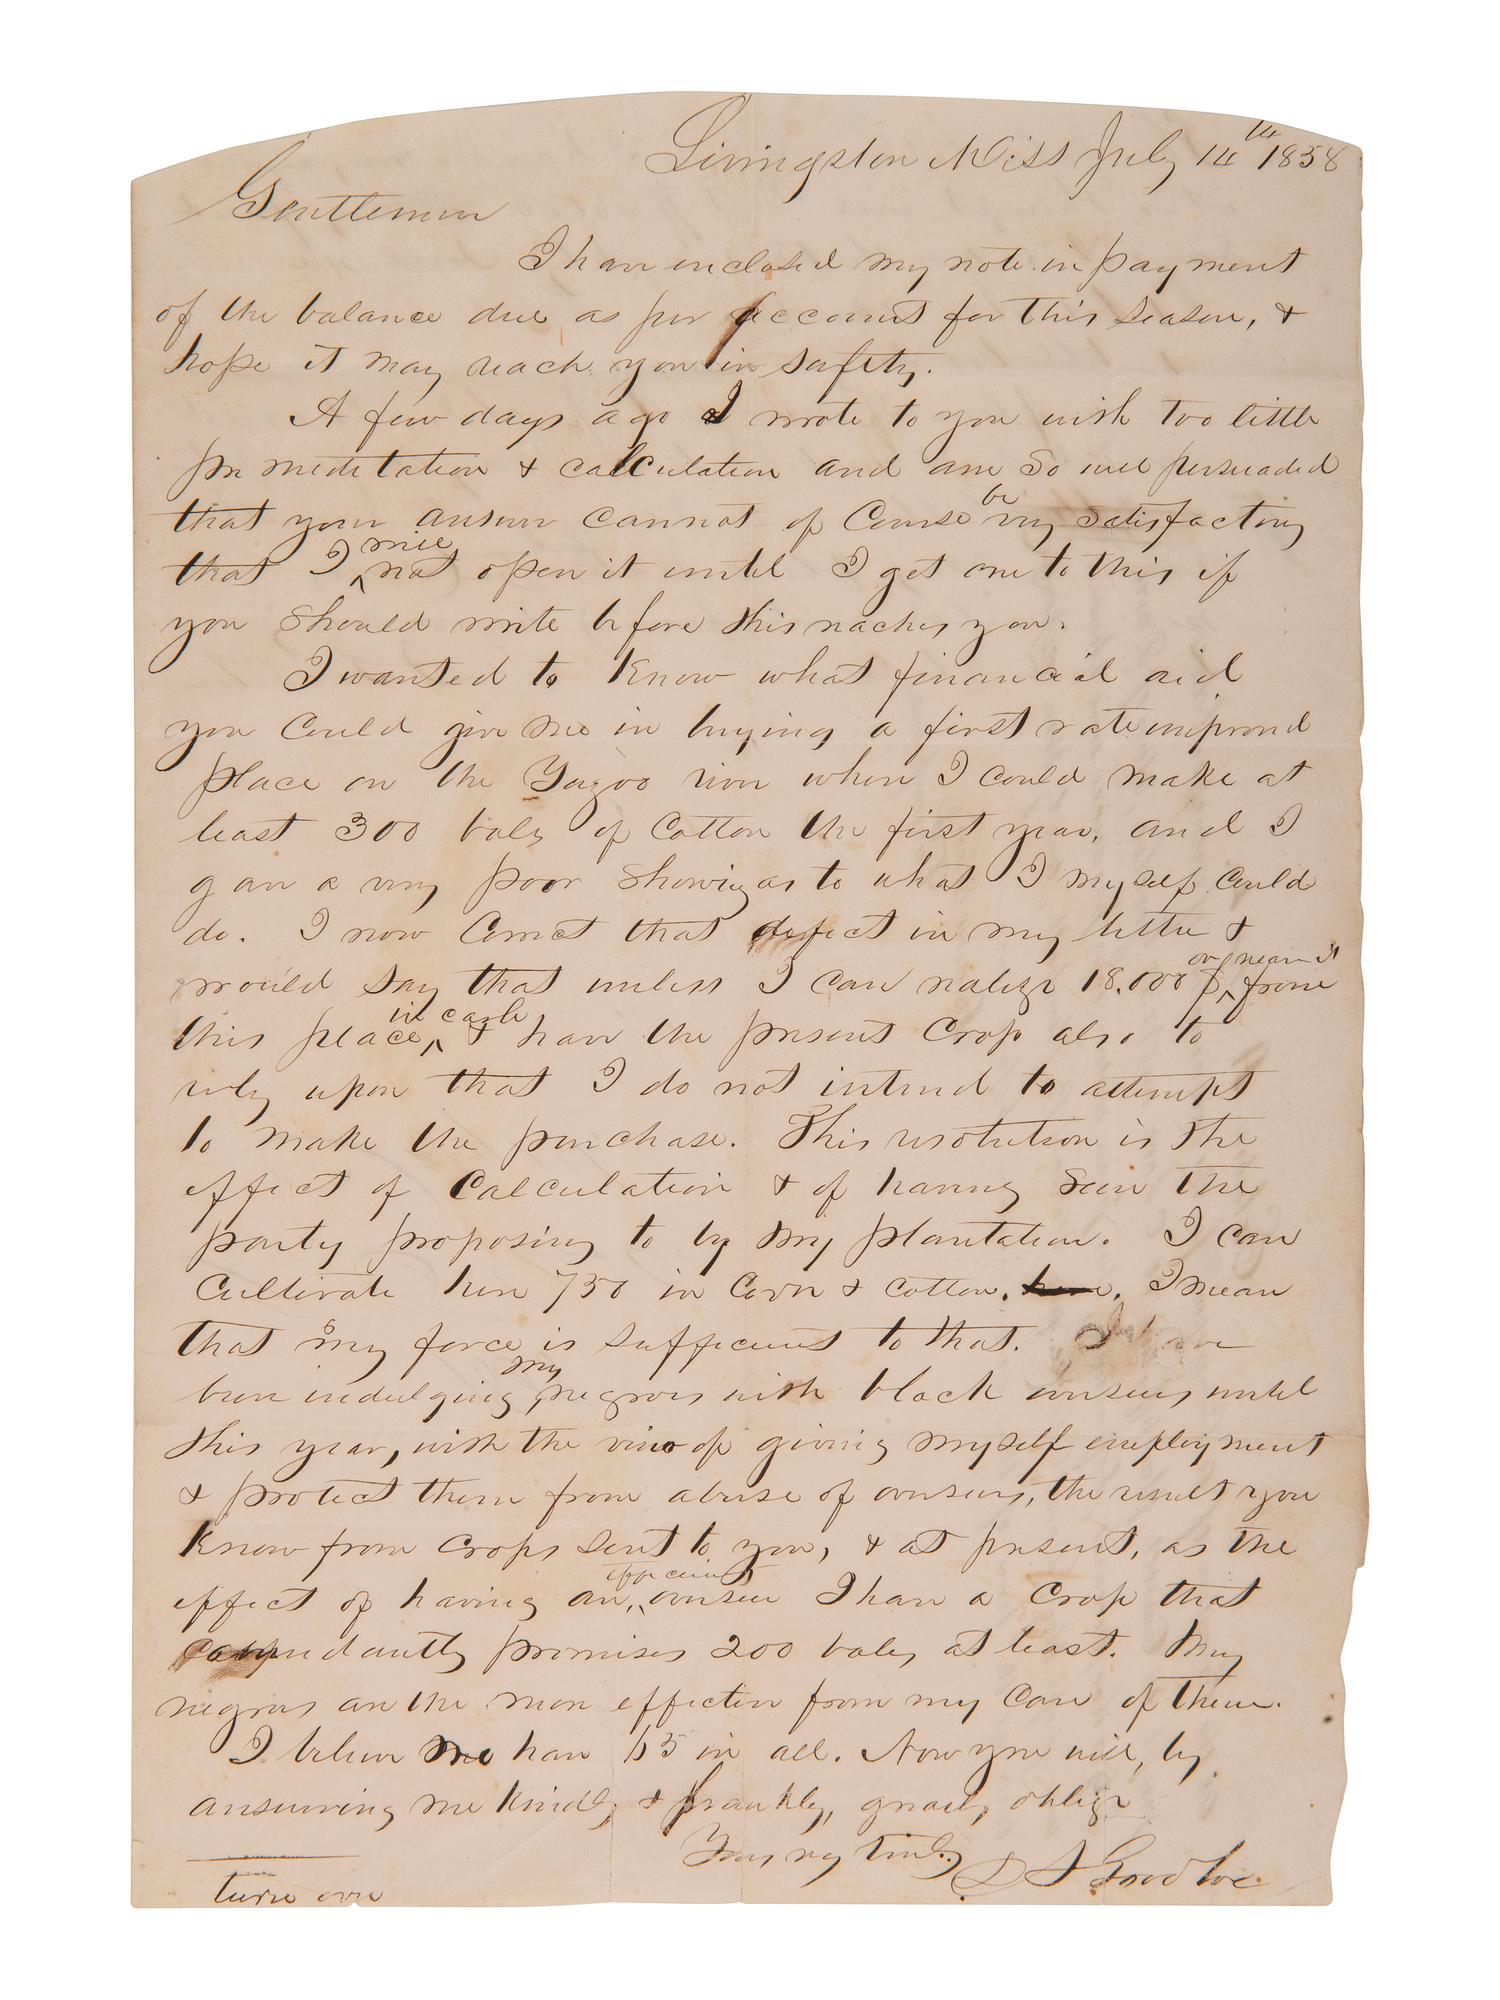 Livingston Miss July 14th 1858
Gentlemen
I have enclosed my note in payment
of the balance due as per account for this season, &
hope it may reach you in safety.
A few days ago I wrote to you with too little
premeditation & calculation and am so well persuaded
that your answer cannot of course be very satisfactory
that I will not open it until I get one to this if
you should write before this reaches you.
I wanted to know what financial aid
you could give me in buying a first rate improved
place on the Yazoo river where I could make at
least 300 bales of cotton the first year, and I
gave a very poor showing as to what I myself could
do. I now correct that defect in my letter &
would say that unless I can realize 18.000 $ or near it from
this place, in cash & have the present crop also to
rely upon that I do not intend to attempt
to make the purchase. This resolution is the
effect of calculation & of having seen the
party proposing to by my plantation. I can
cultivate here 750 in corn & cotton. here. I mean
that my force is sufficient to that. I have
been indulging my negroes with black overseers until
this year, with the view of giving myself employment
& protect them from abuse of overseers, the result you
know from crops sent to you, & at present, as the
effect of having an, efficient overseer I have a crop that
confidantly promises 200 bales at least. My
negroes are the more effective from my care of them.
I believe we have 65 in all. Now you will, by
answering me kindly & frankly, greatly oblige
Yours very truly D S Goodloe
turn over